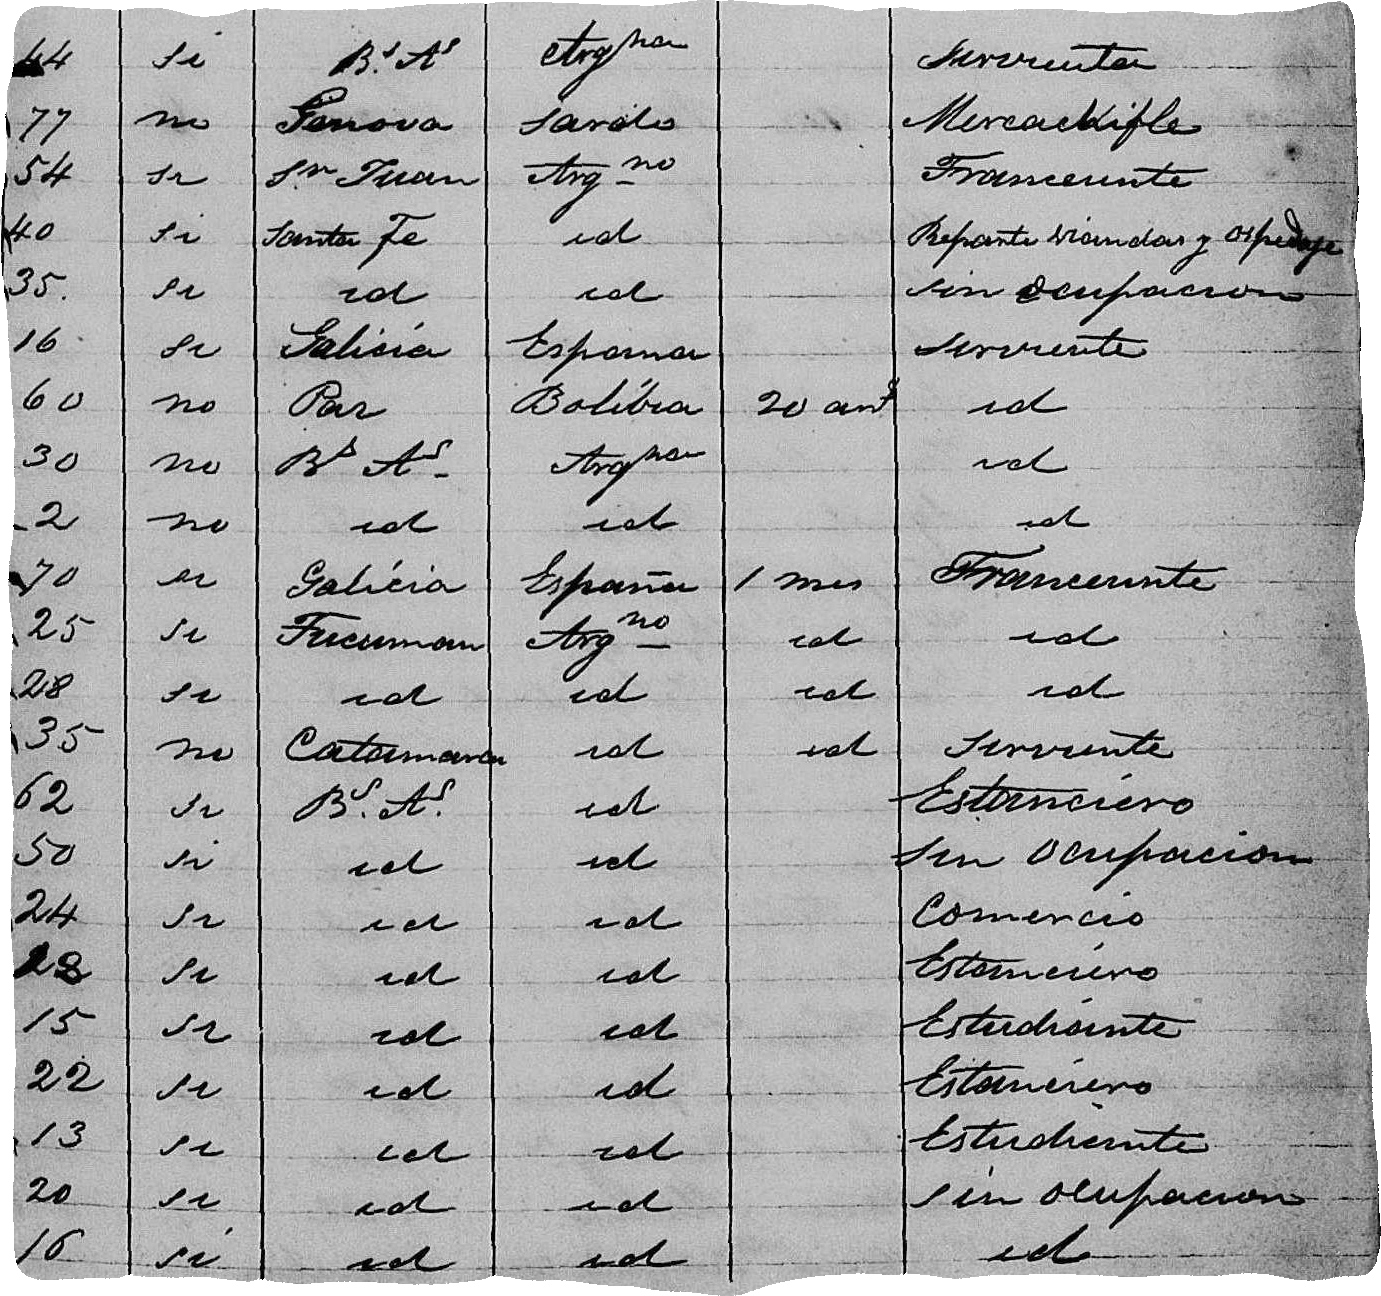 44 si B.s As Argna Sirvienta
77 no Genova Sardo
54 si Sn Juan Argno Transeunte
40 si Santa Fe id Reparte viandas y ospedaje
35. si id id sin ocupacion
16 si Galicia Espana Sirviente
60 no Paz Bolibia 20 ans id
30 no Bs As Argna id
2 no id id id
70 si Galicia España 1 mes Transeunte
25 si Tucuman Argno id id
28 si id id id id
35 no Catamarca id id Sirviente
62 si Bs. As. id Estanciero
50 si id id sin ocupacion
24 si id id Comercio
28 si id id Estanciero
15 si id id Estudiante
22 si id id Estanciero
13 si id id Estudiante
20 si id id sin ocupacion
16 si id id id